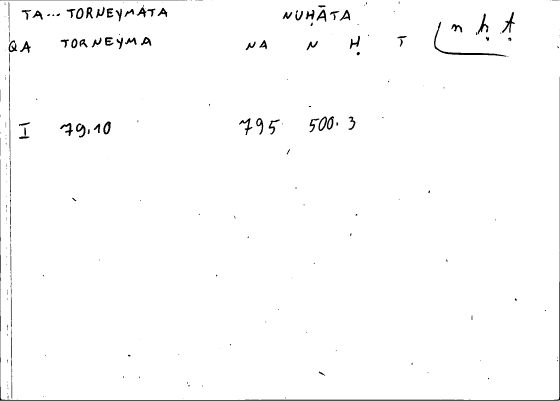 TA... TORNEYMATA NUḤĀTA
QA TORNEYMA NA N Ḥ T n ḥ ṭ
I 79.10 795 500. 3